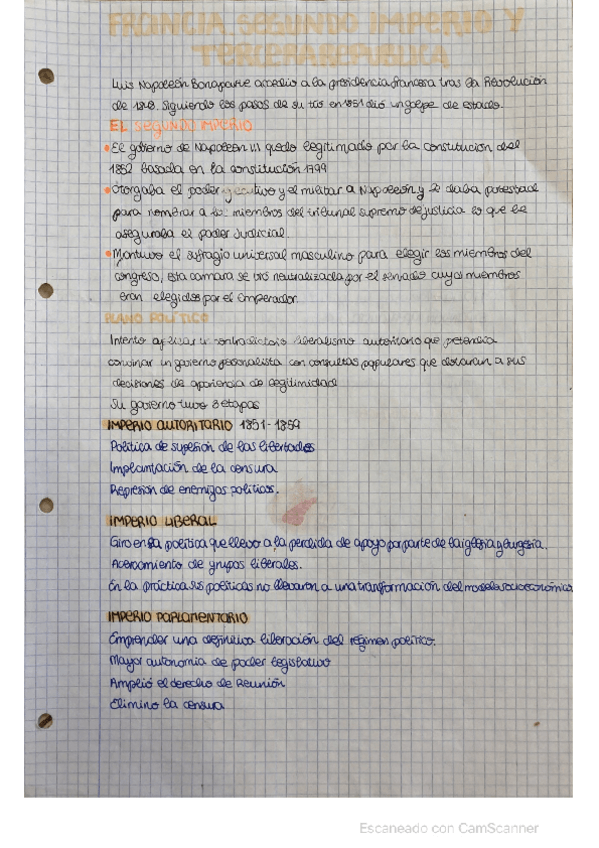 FRANCIA, SEGUNDO IMPERIO Y
TERCERA REPUBLICA
Luis Napoleón Bonaparte accedio a la presidencia francesa tras la Revolucion
de 1848. Siguiendo los pasos de su tio en 1851 dió un golpe de estado.
EL SEGUNDO IMPERIO
El gobierno de Napoleón III quedo legitimado por la constitucion del
1852 basada en la constitución 1799
Otorgaba el poder ejecutivo y el militar a Napoleón y le daba potestad
para nombrar a los miembros del tribunal supremo de justicia lo que le
aseguraba el poder judicial.
Mantuvo el sufragio universal masculino para elegir los miembros del
congreso, esta camara se vió neutralizada por el senado cuyos miembros
eran elegidos por el Emperador.
PLANO POLÍTICO
Intento aplicar un contradictorio liberalismo autoritario que pretendia
convinar un governo personalista con consultas populares que dotaran a sus
decisiones de apariencia de legitimidad
Su governo tuvo 3 etapas
IMPERIO AUTORITARIO 1851-1859
Politica de supresion de las libertades
Implantación de la censura
Represion de enemigos politicos.
IMPERIO LIBERAL
Giro en la politica que llevo a la perdida de apoyo por parte de la iglesia y burgesia.
Acercamiento de grupos liberales.
En la práctica las politicas no llevaron a una transformación del modelo socioeconómico
IMPERIO PARLAMENTARIO
Emprender una definitiva liberación del régimen politico.
Mayor autonomia de poder legislativo
Amplió el derecho de Reunión
Elimino la censura
Escaneado con CamScanner